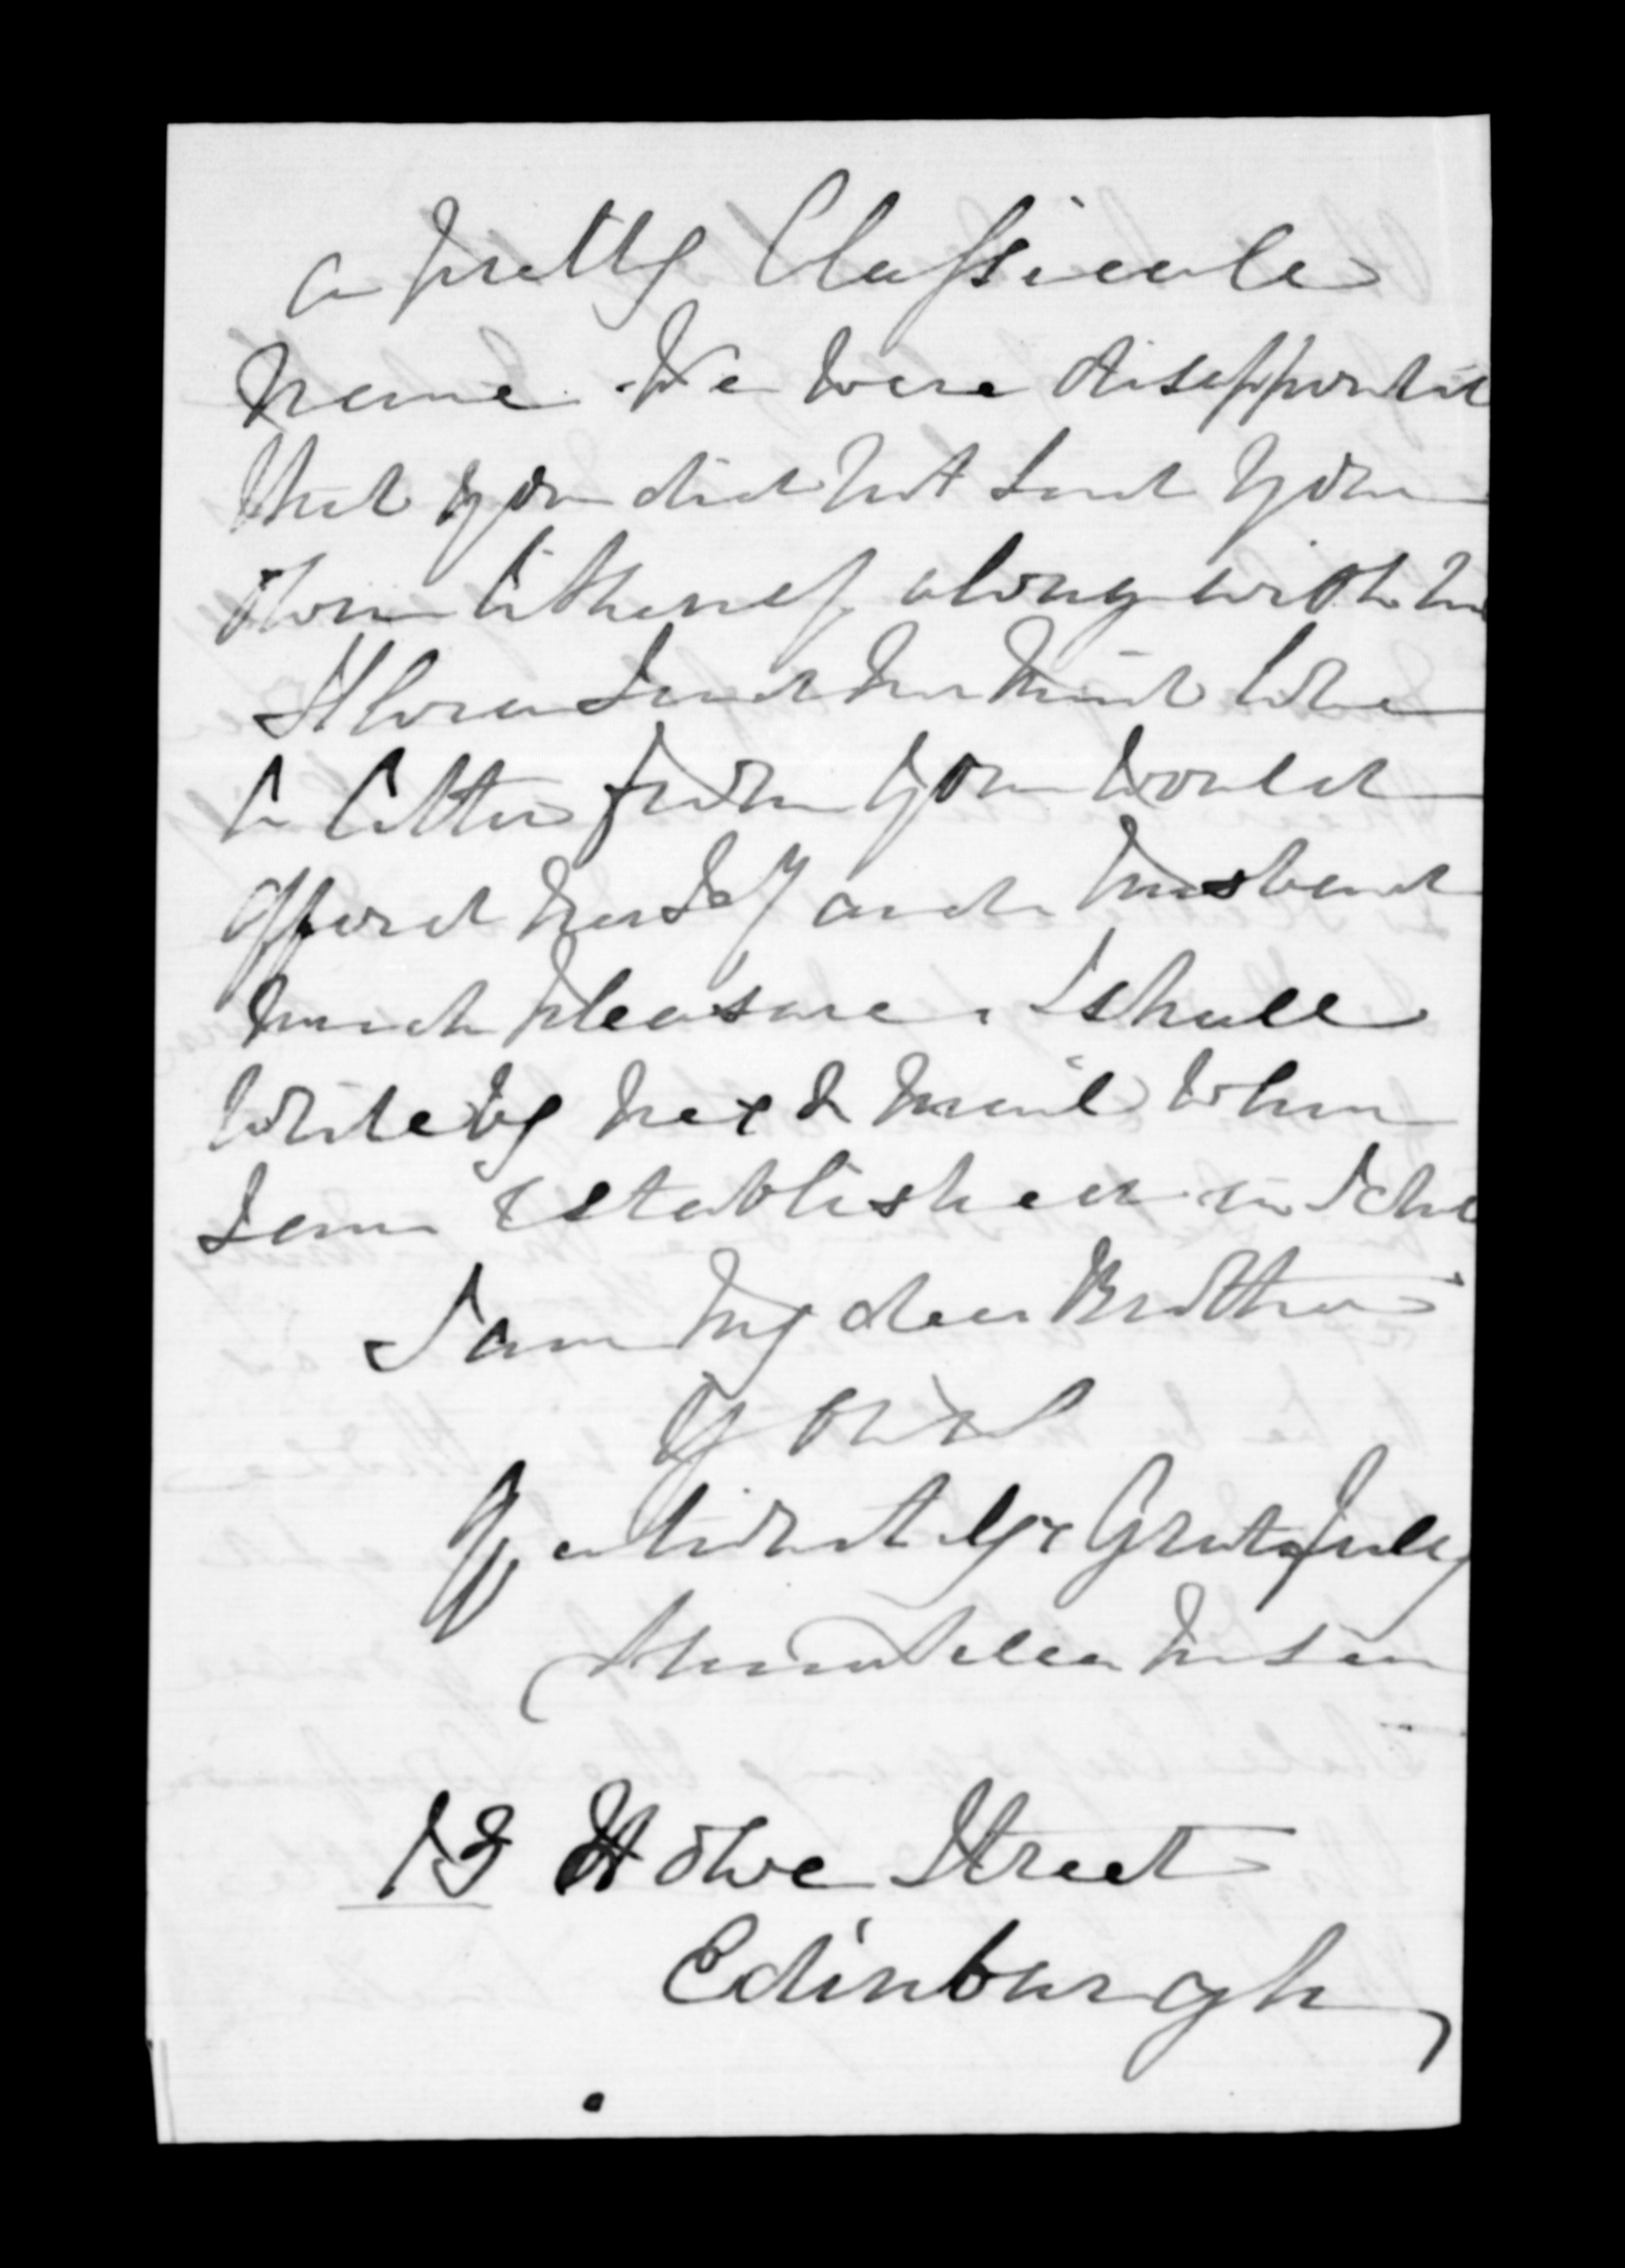 a pretty Classicale
name. We were disappointed
that you did not send your
own likeness along with
Flora sends her kind love
a letter from you would
afford herself and husband
much pleasure. I shall
write by next mail when
I am established in
I am my dear Brother
Yours
affectionately & Gratefully
13 Howe Street
Edinburgh